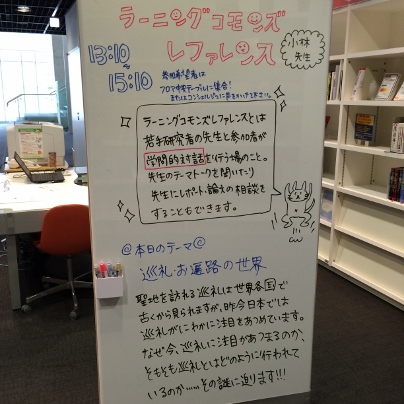 ラーニングコモンズ
レファレンス
13:10
~
15:10
小林
先生
参加希望者は
フロア中央テーブルに集合!
またはコンシェルジュに声をかけて下さい。
ラーニングコモンズレファレンスとは
若手研究者の先生と参加者が
学問的対話を行う場のこと。
先生のテーマトークを聞いたり
先生にレポート・論文の相談を
することもできます。
@本日のテーマ@
巡礼・お遍路の世界
聖地を訪れる巡礼は世界各国で
古くから見られますが、昨今日本では
巡礼がにわかに注目をあつめています。
なぜ今、巡礼に注目があつまるのか、
そもそも巡礼とはどのように行われて
いるのか……その謎に迫ります!!!